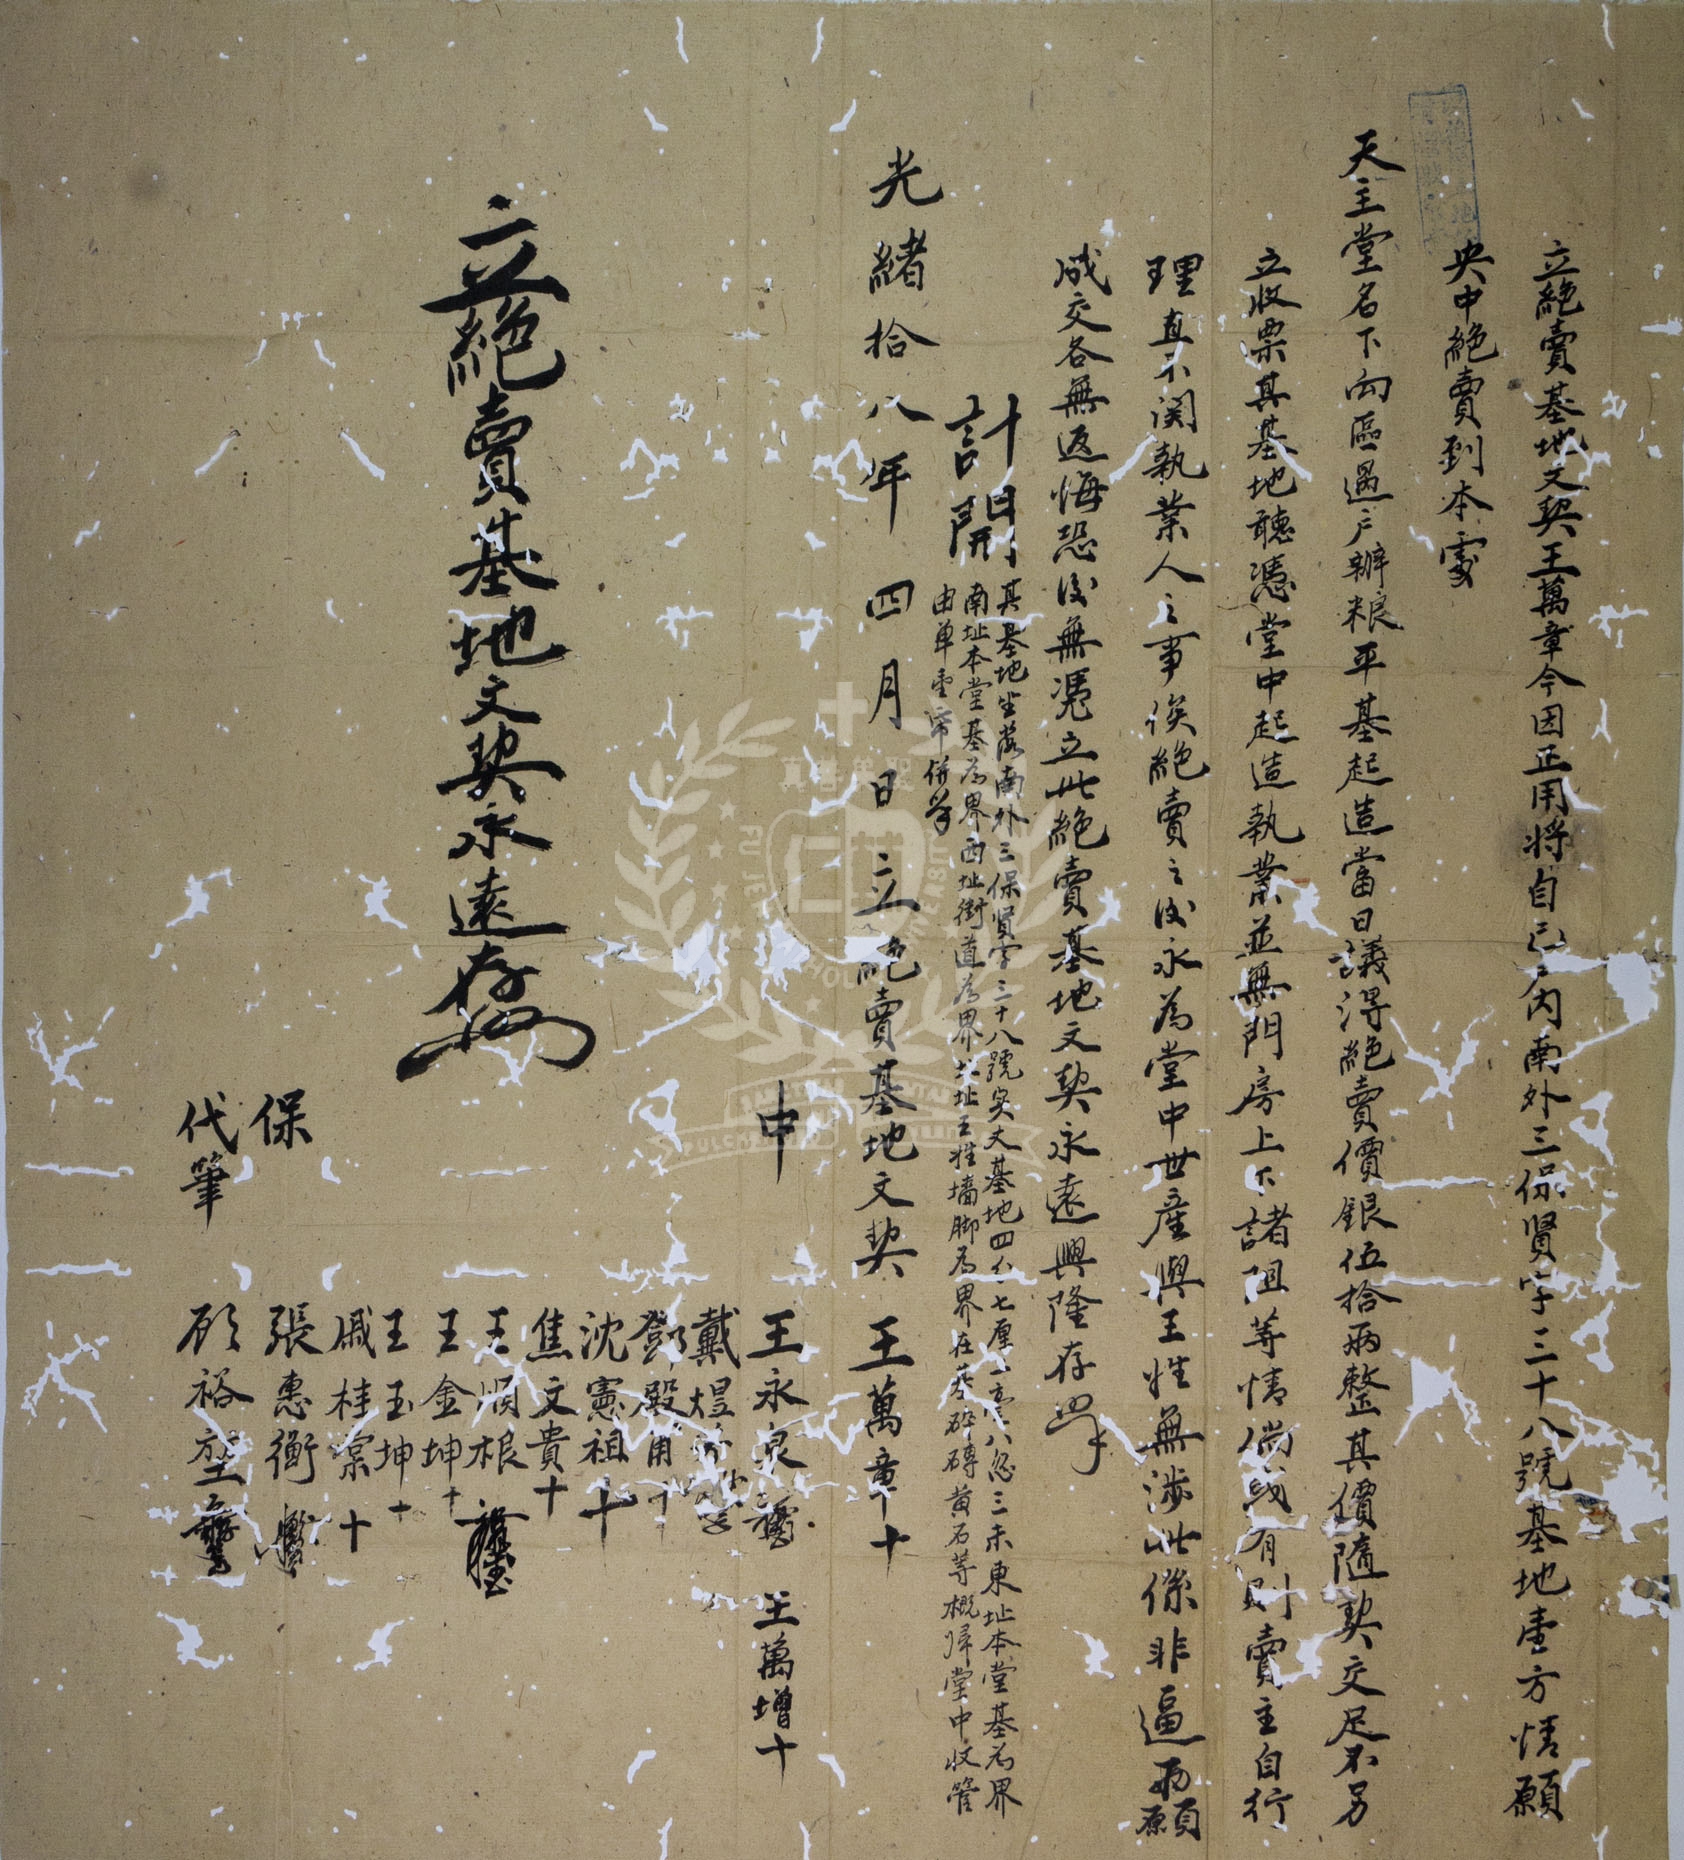 立絕賣基地文契王萬章今因正用將自己戶內南外三保賢字三十八號基地壹方情願
央中絕賣到本處
天主堂名下向區過戶辦粮平基起造當日議淂絕賣價銀伍拾兩整其價隨契交足不另
立收票其基地聽憑堂中起造執業並無門房上下諸阻等情倘或有則賣主自行
理直不関執業人之事俟絕賣之後永為堂中世産與王姓無涉此係非逼兩願
成交各無返悔恐後無憑立此絕賣基地文契永遠興隆存照
計開
其基地坐落南外三保賢字三十八號实丈基地四分七厘二毫八忽三末東址本堂基為界
南址本堂基為界西址街道為界北址王姓墙脚為界在基碎磚黄石等概歸堂中收管
由单壹帋併照
光緒拾八年四月日立絕賣基地文契 王萬章十
中 王永泉 王萬增十
戴煜
鄧殿用十
沈憲祖十
焦文貴十
王順根
王金坤十
王玉坤十
戚桂棠十
保 張惠衡
代筆 顾裕堃
立絕賣基地文契永遠存照
真善美聖
FU JEN